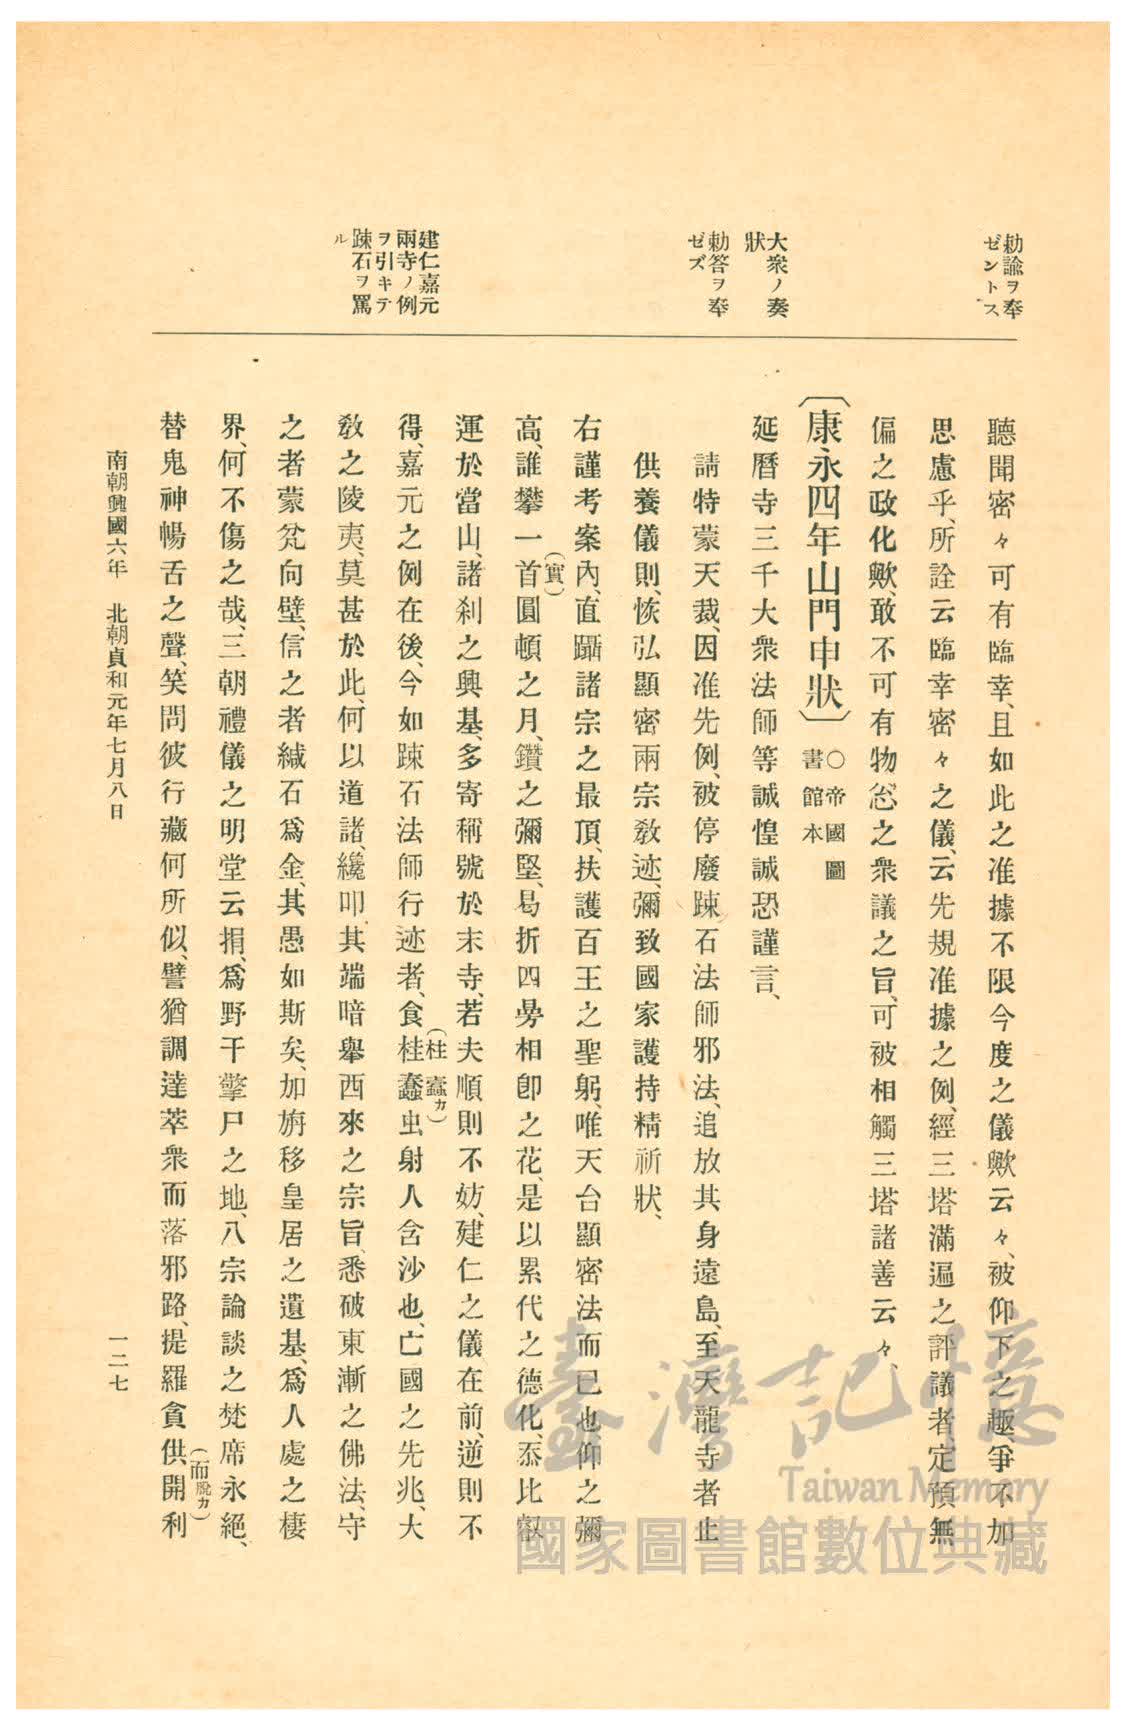 勅諭ヲ奉
ゼントス
勅答ヲ奉
ゼズ
大衆ノ奏
狀
建仁嘉元
兩寺ノ例
ヲ引キテ
踈石ヲ罵
ル
聽聞密々可有臨幸、且如此之准據不限今度之儀歟云々、被仰下之趣、爭不加
思慮乎、所詮云臨幸密々之儀、云先規准據之例、經三塔滿遍之評議者定預無
偏之政化歟、敢不可有物忩之衆議之旨、可被相觸三塔諸善云々、
〔康永四年山門申狀〕○帝國圖書館本
延曆寺三千大衆法師等誠惶誠恐謹言、
請特蒙天裁、因准先例、被停廢踈石法師邪法、追放其身遠島、至天龍寺者止
供養儀則、恢弘顯密兩宗教迹、彌致國家護持精祈狀、
右謹考案內、直躡諸宗之最頂、扶護百王之聖躬、唯天台顯密法而已也仰之彌
高、誰攀一首(實)圓頓之月、鑽之彌堅、曷折四曼相卽之花、是以累代之德化、忝比叡
運於當山、諸刹之興基、多寄稱號於末寺、若夫順則不妨、建仁之儀在前、逆則不
得、嘉元之例在後、今如踈石法師行迹者、食桂蠹(柱蠹カ)虫射人含沙也、亡國之先兆、大
教之陵夷、莫甚於此、何以道諸、纔叩其端暗擧西來之宗旨、悉破東漸之佛法、守
之者蒙瓫向壁、信之者緘石爲金、其愚如斯矣、加旃移皇居之遺基、爲人處之棲
界、何不傷之哉、三朝禮儀之明堂云捐、爲野干擎尸之地、八宗論談之梵席永絕、
替鬼神暢舌之聲、笑問彼行藏何所似、譬猶調達萃衆而落邪路、提羅貪供(而脫カ)開利
南朝興國六年 北朝貞和元年七月八日
一二七
臺灣記憶
Taiwan Memory
國家圖書館數位典藏